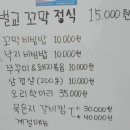 벌교 꼬막 정식 15,000원
꼬막비빔밥 10,000원
낙지비빔밥 10,000원
쭈꾸미&돼지볶음 10,000원
삼겹살(200g) 10,000원
오리한마리 35,000원
묵은지 갈비찜 30,000원
40,000원
계절메뉴